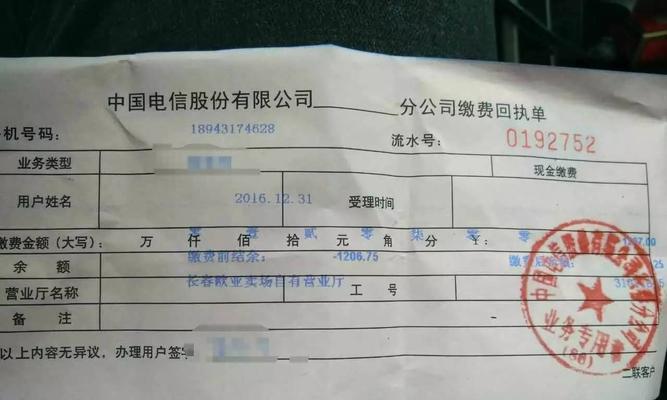 中国电信股份有限公司 分公司缴费回执单
机号码: 18943174628 流水号: 0192752
业务类型 现金缴费
用户姓名 2016.12.31 受理时间
缴费金额(大写): 万 仟 佰 拾 元 角 分 ¥:
零 壹 贰 零 柒 零 零
余 额 缴费前结余: -1206.75
营业厅名称 长春欧亚卖场自有营业厅 工 号
备 注
以上内容无异议,办理用户签字
二联客户
业务专用章